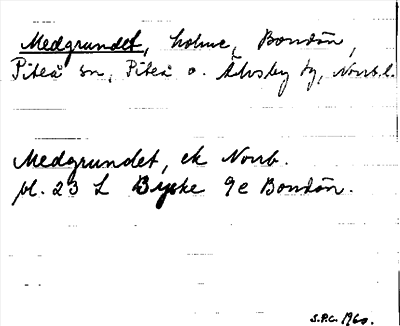 Medgrundet, holme, Bondön,
Piteå sn, Piteå o. Älvsby tg, Norrb.l.
Medgrundet, ek Norrb.
bl. 23 L Byske 9e Bondön.
S.P.G. 1960.